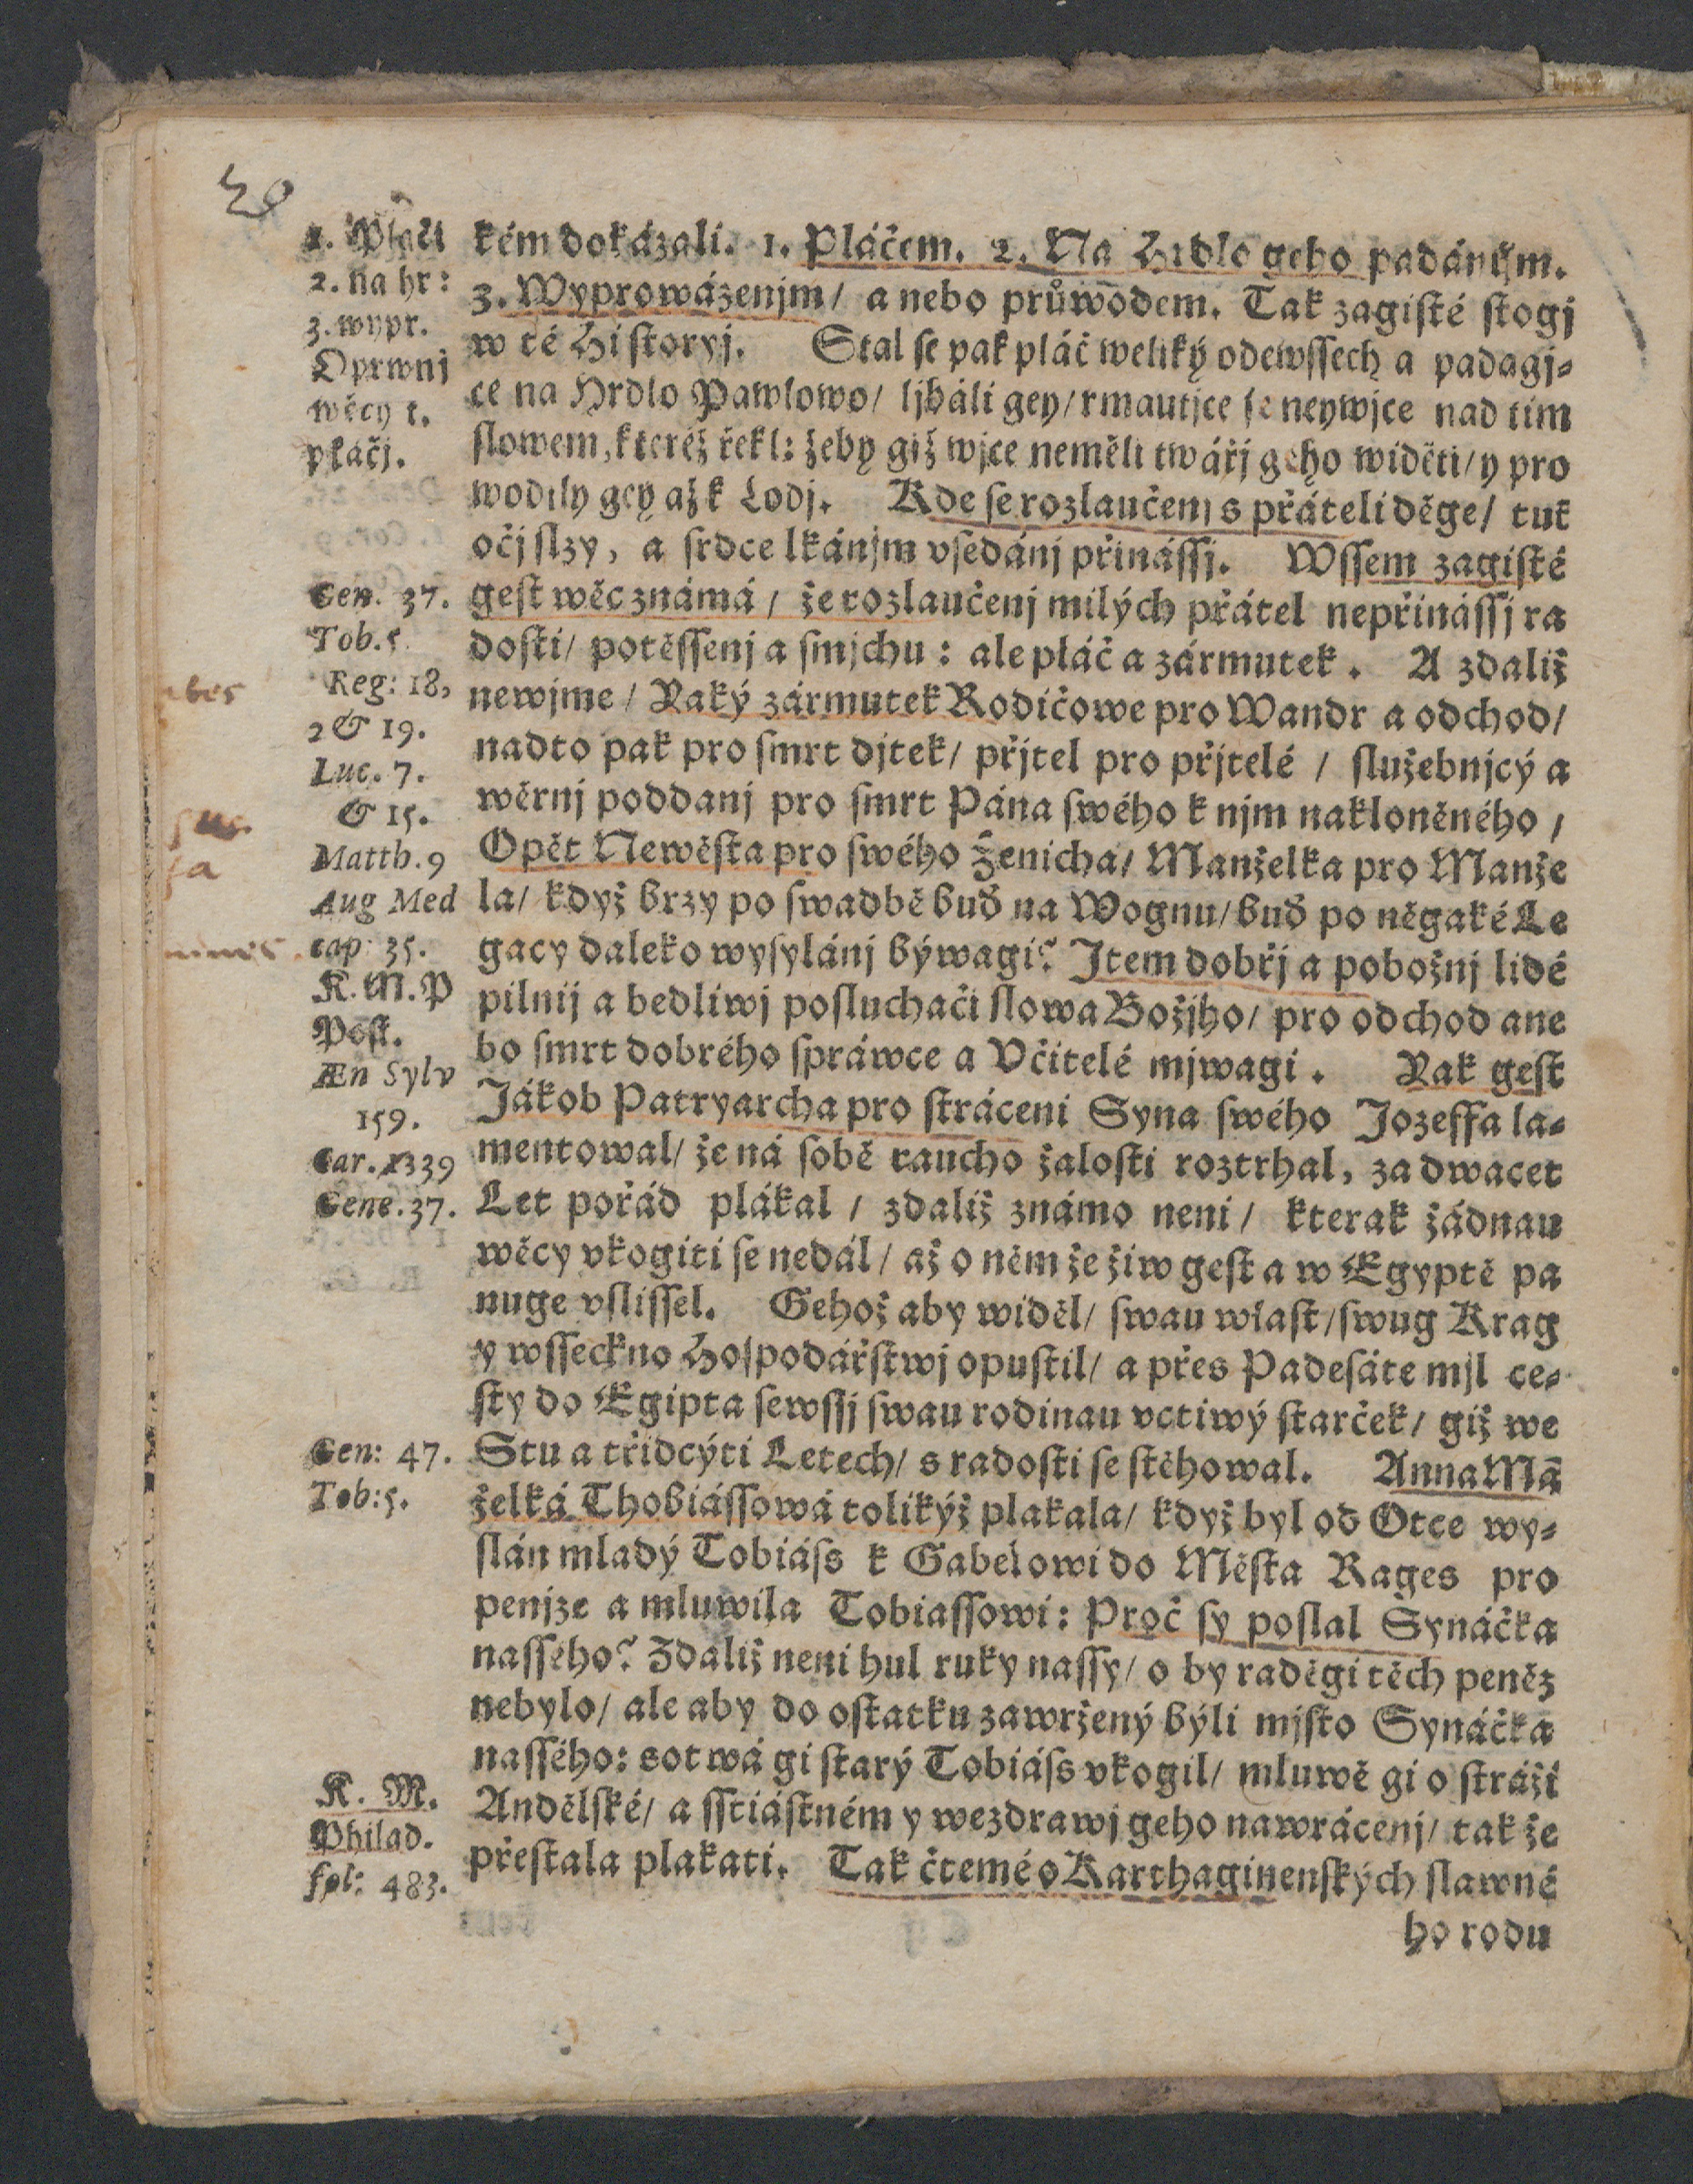 20
1. Pláči
2. na hr:
3. wypr.
O prwnj
wěcy t.
pláčj.
Gen. 37.
Tob. 5.
Reg: 18,
2 & 19.
Luc. 7.
& 15.
Matth. 9
Aug Med
cap: 35.
K. M. P
Post.
Æn Sylv
159.
Car. 1339
Gene. 37.
Gen: 47.
Tob: 5.
K. M.
Philad.
fol: 483.
kém dokázali. 1. Pláčem. 2. Na Hrdlo geho padánjm.
3. Wyprowázenjm / a nebo průwodem. Tak zagisté stogj
w té Historyj. Stal se pak pláč weliký odewssech a padagj=
ce na Hrdlo Pawlowo / ljbáli gey / rmautjce se neywjce nad tim
slowem, kteréž řekl: žeby giž wjce neměli twářj geho widěti / y pro
wodily gey až k Lodj. Kde se rozlaučenj s přáteli děge / tuť
očj slzy, a srdce lkánjm vsedánj přinássj. Wssem zagisté
gest wěc známá / že rozlaučenj milých přátel nepřinássj ra
dosti / potěssenj a smjchu : ale pláč a zármutek . A zdaliž
newjme / Yaký zármutek Rodičowe pro Wandr a odchod /
nadto pak pro smrt djtek / přjtel pro přjtelé / služebnjcý a
wěrnj poddanj pro smrt Pána swého k njm nakloněného /
Opět Newěsta pro swého Ženicha / Manželka pro Manže
la / když brzy po swadbě buď na Wognu / buď po něgaké Le
gacy daleko wysylánj býwagi? Item dobřj a pobožnj lidé
pilnij a bedliwj posluchači slowa Božjho / pro odchod ane
bo smrt dobrého spráwce a Včitelé mjwagi . Yak gest
Jákob Patryarcha pro stráceni Syna swého Jozeffa la=
mentowal / že ná sobě raucho žalosti roztrhal, za dwacet
Let pořád plákal / zdaliž známo neni / kterak žádnau
wěcy vkogiti se nedál / až o něm že žiw gest a w Egyptě pa
nuge vslissel. Gehož aby widěl / swau wlast / swug Krag
y wsseckno Hospodářstwj opustil / a přes Padesáte mjl ce=
sty do Egipta sewssj swau rodinau vctiwý starček / giž we
Stu a třidcýti Letech / s radosti se stěhowal. Anna Mā
želká Thobiássowá tolikýž plakala / když byl od Otce wy=
slán mladý Tobiáss k Gabelowi do Města Rages pro
penjze a mluwila Tobiassowi : Proč sy poslal Synáčka
nassého? Zdaliž neni hul ruky nassy / o by raděgi těch peněz
nebylo / ale aby do ostatku zawržený býli mjsto Synáčka
nassého: sotwá gi starý Tobiáss vkogil / mluwě gi o stráži
Andělské / a sstiástném y wezdrawj geho nawrácenj / tak že
přestala plakati. Tak čtemé o Karthaginenských slawné
ho rodu